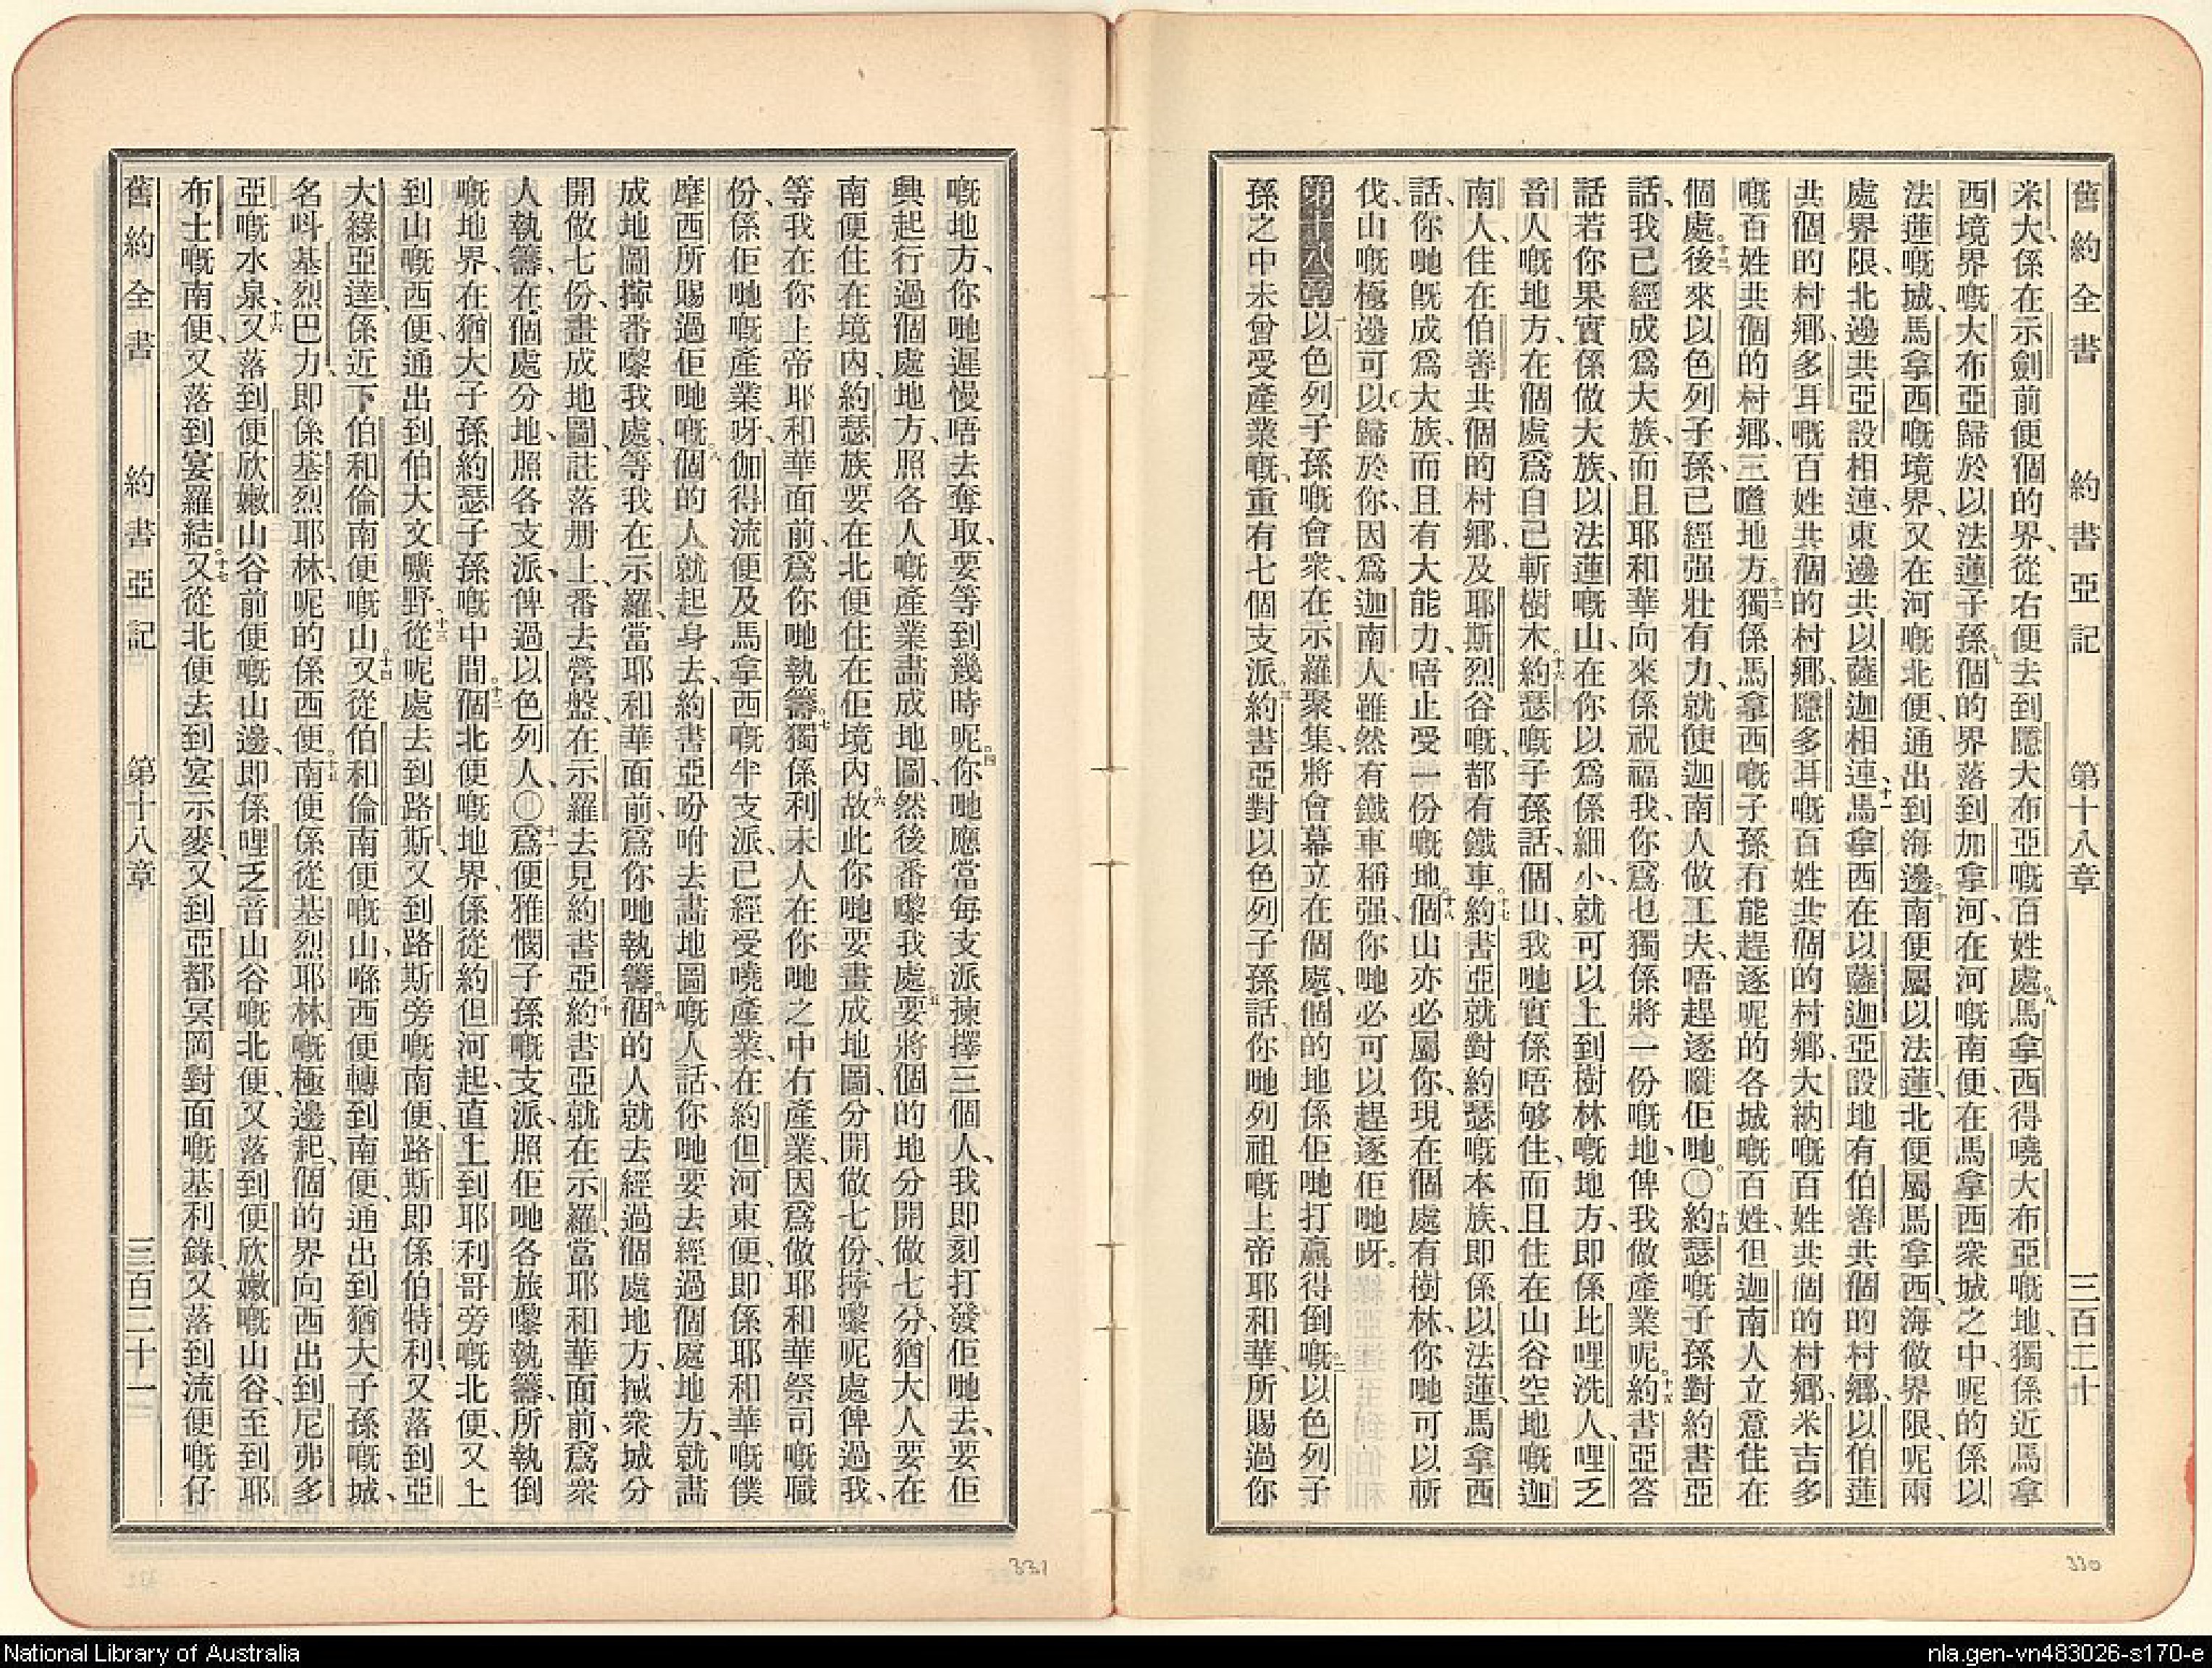 舊約全書 約書亞記 第十八章 三百二十
米大、係在示劍前便個的界、從右便去到隱大布亞嘅百姓處。八馬拿西得曉大布亞嘅地、獨係近馬拿
西境界嘅大布亞歸於以法蓮子孫。九個的界落到加拿河、在河嘅南便、在馬拿西衆城之中、呢的係以
法蓮嘅城、馬拿西嘅境界、又在河嘅北便、通出到海邊。十南便屬以法蓮、北便屬馬拿西、海做界限、呢兩
處界限、北邊共亞設相連、東邊共以薩迦相連、十一馬拿西在以薩迦亞設地有伯善共個的村鄉、以伯蓮
共個的村鄉、多耳嘅百姓共個的村鄉、隱多耳嘅百姓共個的村鄉、大納嘅百姓共個的村鄉、米吉多
嘅百姓共個的村鄉、三瞻地方。十二獨係馬拿西嘅子孫有能趕逐呢的各城嘅百姓、但迦南人立意住在
個處。十三後來以色列子孫、已經强壯有力、就使迦南人做工夫、唔趕逐曬佢哋。〇十四約瑟嘅子孫對約書亞
話、我已經成爲大族、而且耶和華向來係祝福我、你爲乜獨係將一份嘅地、俾我做產業呢。十五約書亞答
話、若你果實係做大族、以法蓮嘅山、在你以爲係細小、就可以上到樹林嘅地方、卽係比哩洗人、哩乏
音人嘅地方、在個處爲自己斬樹木。十六約瑟嘅子孫話、個山、我哋實係唔够住、而且住在山谷空地嘅迦
南人、住在伯善共個的村鄉、及耶斯烈谷嘅、都有鐵車。十七約書亞就對約瑟嘅本族、卽係以法蓮、馬拿西
話、你哋旣成爲大族、而且有大能力、唔止受一份嘅地。十八個山亦必屬你、現在個處有樹林、你哋可以斬
伐、山嘅極邊可以歸於你、因爲迦南人雖然有鐵車稱强、你哋必可以趕逐佢哋呀。
第十八章 一以色列子孫嘅會衆、在示羅聚集、將會幕立在個處、個的地係佢哋打贏得倒嘅。二以色列子
孫之中、未曾受產業嘅、重有七個支派。三約書亞對以色列子孫話、你哋列祖嘅上帝耶和華、所賜過你
嘅地方、你哋遲慢唔去奪取、要等到幾時呢。四你哋應當每支派揀擇三個人、我卽刻打發佢哋去、要佢
興起行過個處地方、照各人嘅產業畫成地圖、然後番嚟我處。五要將個的地分開做七分、猶大人要在
南便住在境內、約瑟族要在北便住在佢境內。六故此你哋要畫成地圖、分開做七份、擰嚟呢處俾過我、
等我在你上帝耶和華面前、爲你哋執籌。七獨係利未人在你哋之中冇產業、因爲做耶和華祭司嘅職
份、係佢哋嘅產業呀、伽得流便及馬拿西嘅半支派、已經受曉產業、在約但河東便、卽係耶和華嘅僕
摩西所賜過佢哋嘅。八個的人就起身去、約書亞吩咐去畫地圖嘅人話、你哋要去經過個處地方、就畫
成地圖擰番嚟我處、等我在示羅、當耶和華面前、爲你哋執籌。九個的人就去經過個處地方、搣衆城分
開做七份、畫成地圖、註落册上、番去營盤、在示羅去見約書亞。十約書亞就在示羅、當耶和華面前、爲衆
人執籌、在個處分地、照各支派、俾過以色列人、〇十一爲便雅憫子孫嘅支派、照佢哋各族嚟執籌、所執倒
嘅地界、在猶大子孫約瑟子孫嘅中間。十二個北便嘅地界、係從約但河起、直上到耶利哥旁嘅北便、又上
到山嘅西便、通出到伯大文曠野。十三從呢處去到路斯、又到路斯旁嘅南便、路斯卽係伯特利、又落到亞
大綠亞達、係近下伯和倫南便嘅山。十四又從伯和倫南便嘅山、喺西便轉到南便、通出到猶大子孫嘅城、
名呌基烈巴力、卽係基烈耶林、呢的係西便。十五南便係從基烈耶林嘅極邊起、個的界向西出到尼弗多
亞嘅水泉、十六又落到便欣嫩山谷前便嘅山邊、卽係哩乏音山谷嘅北便、又落到便欣嫩嘅山谷、至到耶
布士嘅南便、又落到宴羅結。十七又從北便去到宴示麥、又到亞都冥岡對面嘅基利錄、又落到流便嘅仔
舊約全書 約書亞記 第十八章 三百二十一
330
331
National Library of Australia
nla.gen-vn483026-s170-e